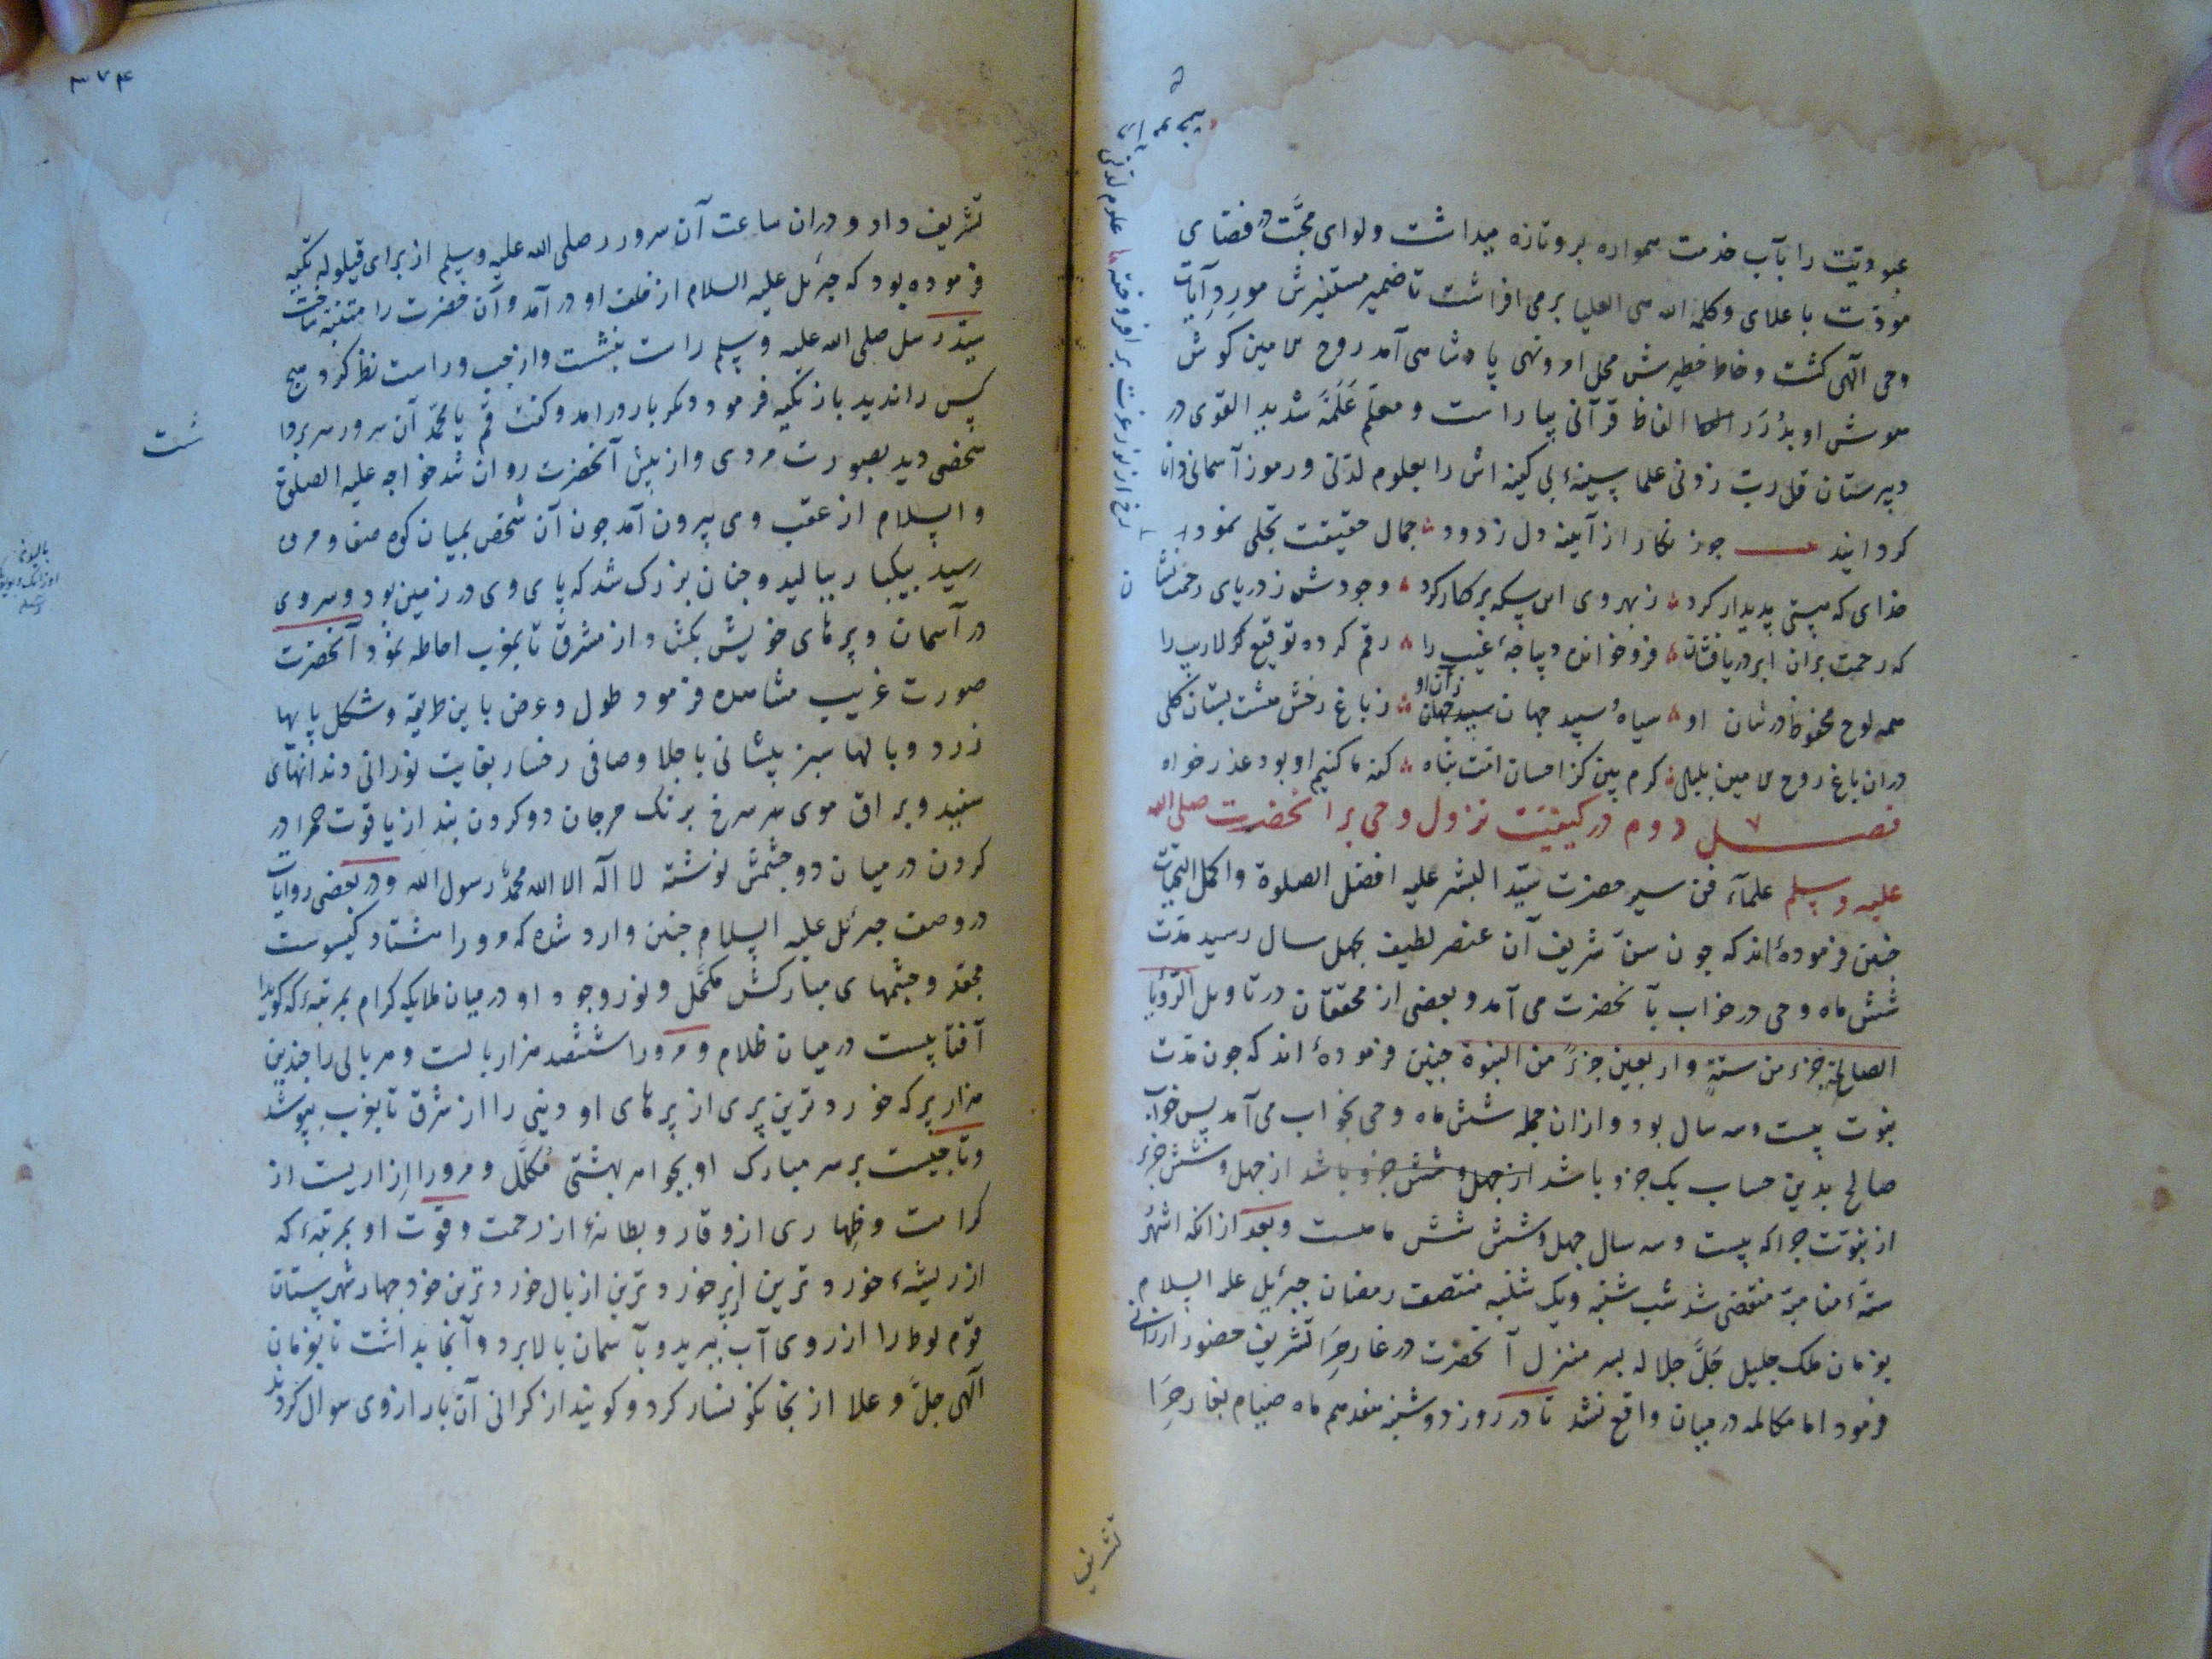 عبودیت را بآب خدمت همواره برو تازه میداشت ولوای محبّت در فضای
مودّت باعلای وکلمة الله هی العلیا برمی افراشت تا ضمیر مستنیرش موردِ آیات
وحی آلهی کشت وخاطر خطیرش محل او ونهی پادشاهی آمد روح الامین کوش
هوش او بدُرَر الفاظ قرآنی بیاراست ومعلّم عَلَّمَهُ شدید القوی در
دبیرستان قل رب زدنی علما سینهٔ بی کینه اش را بعلوم لدنّی ورموز آسمانی دانا
کردانید چون نکار از آینه دل زدود جمال حقیقت تجلی نمود
خدای که هستی پدیدار کرد ز بهر وی این سکه بر کار کرد وجودش ز دریای رحمت
که رحمت بران ابر دریافشان فرو خوانده دیباجهٔ غیب را رقم کرده توقیع لاریب را
همه لوح محفوظ در شان او سیاه وسپید جهان زان او ز باغ رخش هشت بستان کلی
دران باغ روح الامین بلبلی کرم بین کز احسان امت پناه کنه ما کنیم او بود عذر خواه
فصل دوم در کیفیّت نزول وحی بر آنحضرت صلی الله
علیه وسلم علمآء فن سیر حضرت سیّد البشر علیه افضل الصلوة واکمل التحیات
چنین فرموده اند که چون سنّ شریف آن عنصر لطیف بچهل سال رسید مدّت
شش ماه وحی در خواب بآنحضرت می آمد وبعضی از محققان در تاویل الرؤیا
الصالحة جزء من ستةٍ واربعین جزءً من النبوة چنین فرموده اند که چون مدّت
نبوت بیست وسه سال بود وازان جمله شش ماه وحی بخواب می آمد پس خواب
صالح بدین حساب یک جزو باشد از چهل وشش جزو باشد از چهل وشش جزء
از نبوّت چراکه بیست وسه سال چهل وشش شش ماهست وبعد ازانکه اشهر
ستهٔ منامیّه منقضی شد شب شنبه ویک شنبه منتصف رمضان جبرئیل علیه السلام
بفرمان ملک جلیل جَلَّ جلاله بسر منزل آنحضرت در غار حِرَا تشریف حضور ارزانی
فرمود اما مکالمه درمیان واقع نشد تا در روز دوشنبه هفدهم ماه صیام بغار حِرَا
تشریف
۳۷۴
تشریف داد ودران ساعت آن سرور صلی الله علیه وسلم از برای قیلوله تکیه
فرموده بود که جبرئل علیه السلام از خلف او درآمد وآن حضرت را متنبه ساخت
سیّد رسل صلی الله علیه وسلم راست بنشست واز چپ وراست نظر کرد هیچ
کس را ندید باز تکیه فرمود ودکر بار درامد وکفت قم یا محمّد آن سرور سر برداشت
شخصی دید بصورت مردی واز پیش آنحضرت روان شد خواجه علیه الصلوة
والسلام از عقب وی بیرون آمد چون آن شخص بمیان کوه صفا ومروه
رسید بیکبار ببالید وچنان بزرک شد که پای وی در زمین بود وسر وی
در آسمان وپرهای خویش بکشاد از مشرق تا بمغرب احاطه نمود آنحضرت
صورت غریب مشاهده فرمود طول وعرض باین طریقه وشکل پایها
زرد وبالها سبز پیشانی با جلا وصافی رخسار بغایت نورانی دندانهای
سفید وبراق موی سر سرخ برنک مرجان دو کردن بند از یاقوت حمرا در
کردن درمیان دو چشمش نوشته لا اله الا الله محمدٌ رسول الله ودر بعضی روایات
در وصف جبرئل علیه السلام چنین وارد شده که وورا هشتاد کیسوست
مجعّد وچشمهای مبارکش مکحّل ونور وجود او درمیان ملایکه کرام بمرتبهٔ که کویا
آفتابیست درمیان ظلام ومرورا ششصد هزار بالست وهر بالی را چندین
هزار پر که خوردترین پری از پرهای او دنیی را از مشرق تا بغرب بپوشد
وتاجیست بر سر مبارک او بجواهر بهشتی مُکلّل ومرورا اِزاریست از
کرامت وظِهاری از وقار وبطانهٔ از رحمت وقوّت او بمرتبهٔ که
از ریشهٔ خوردترین پر خوردترین از بال خوردترین خود چهار شهرستان
قوم لوط را از روی آب ببرید وبآسمان بالا برد وآنجا بداشت تا بفرمان
آلهی جلّ وعلا از انجا نکونسار کرد وکویند از کرانی آن بار از وی سوال کردند